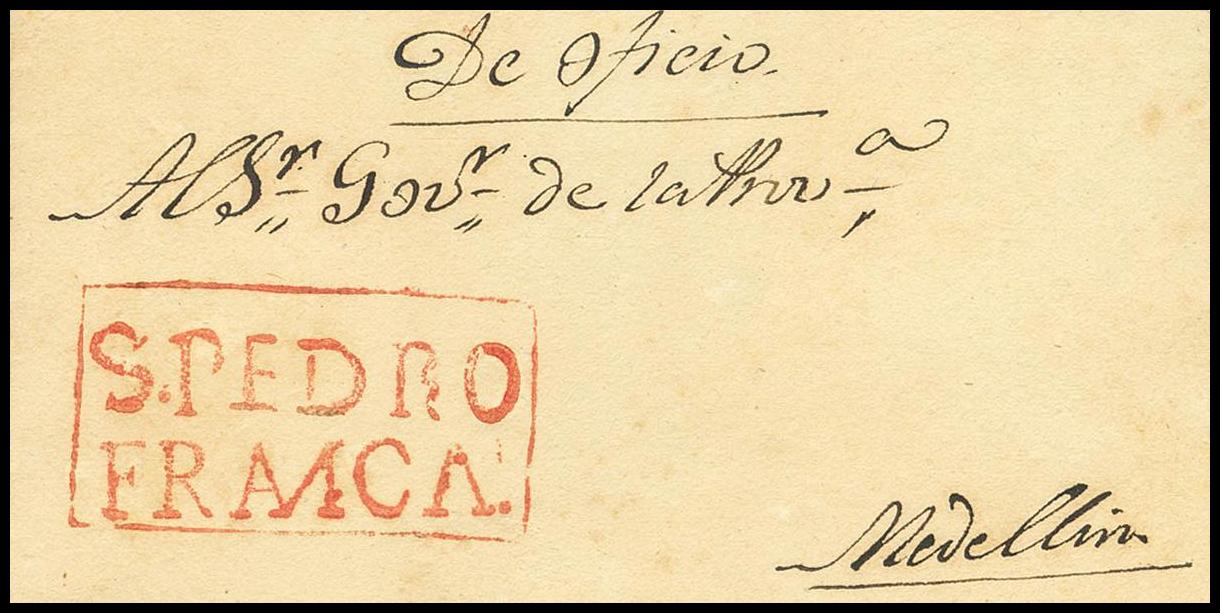 De oficio.
Al Sr. Govr. de la Prova
S. PEDRO
FRANCA.
Medellin